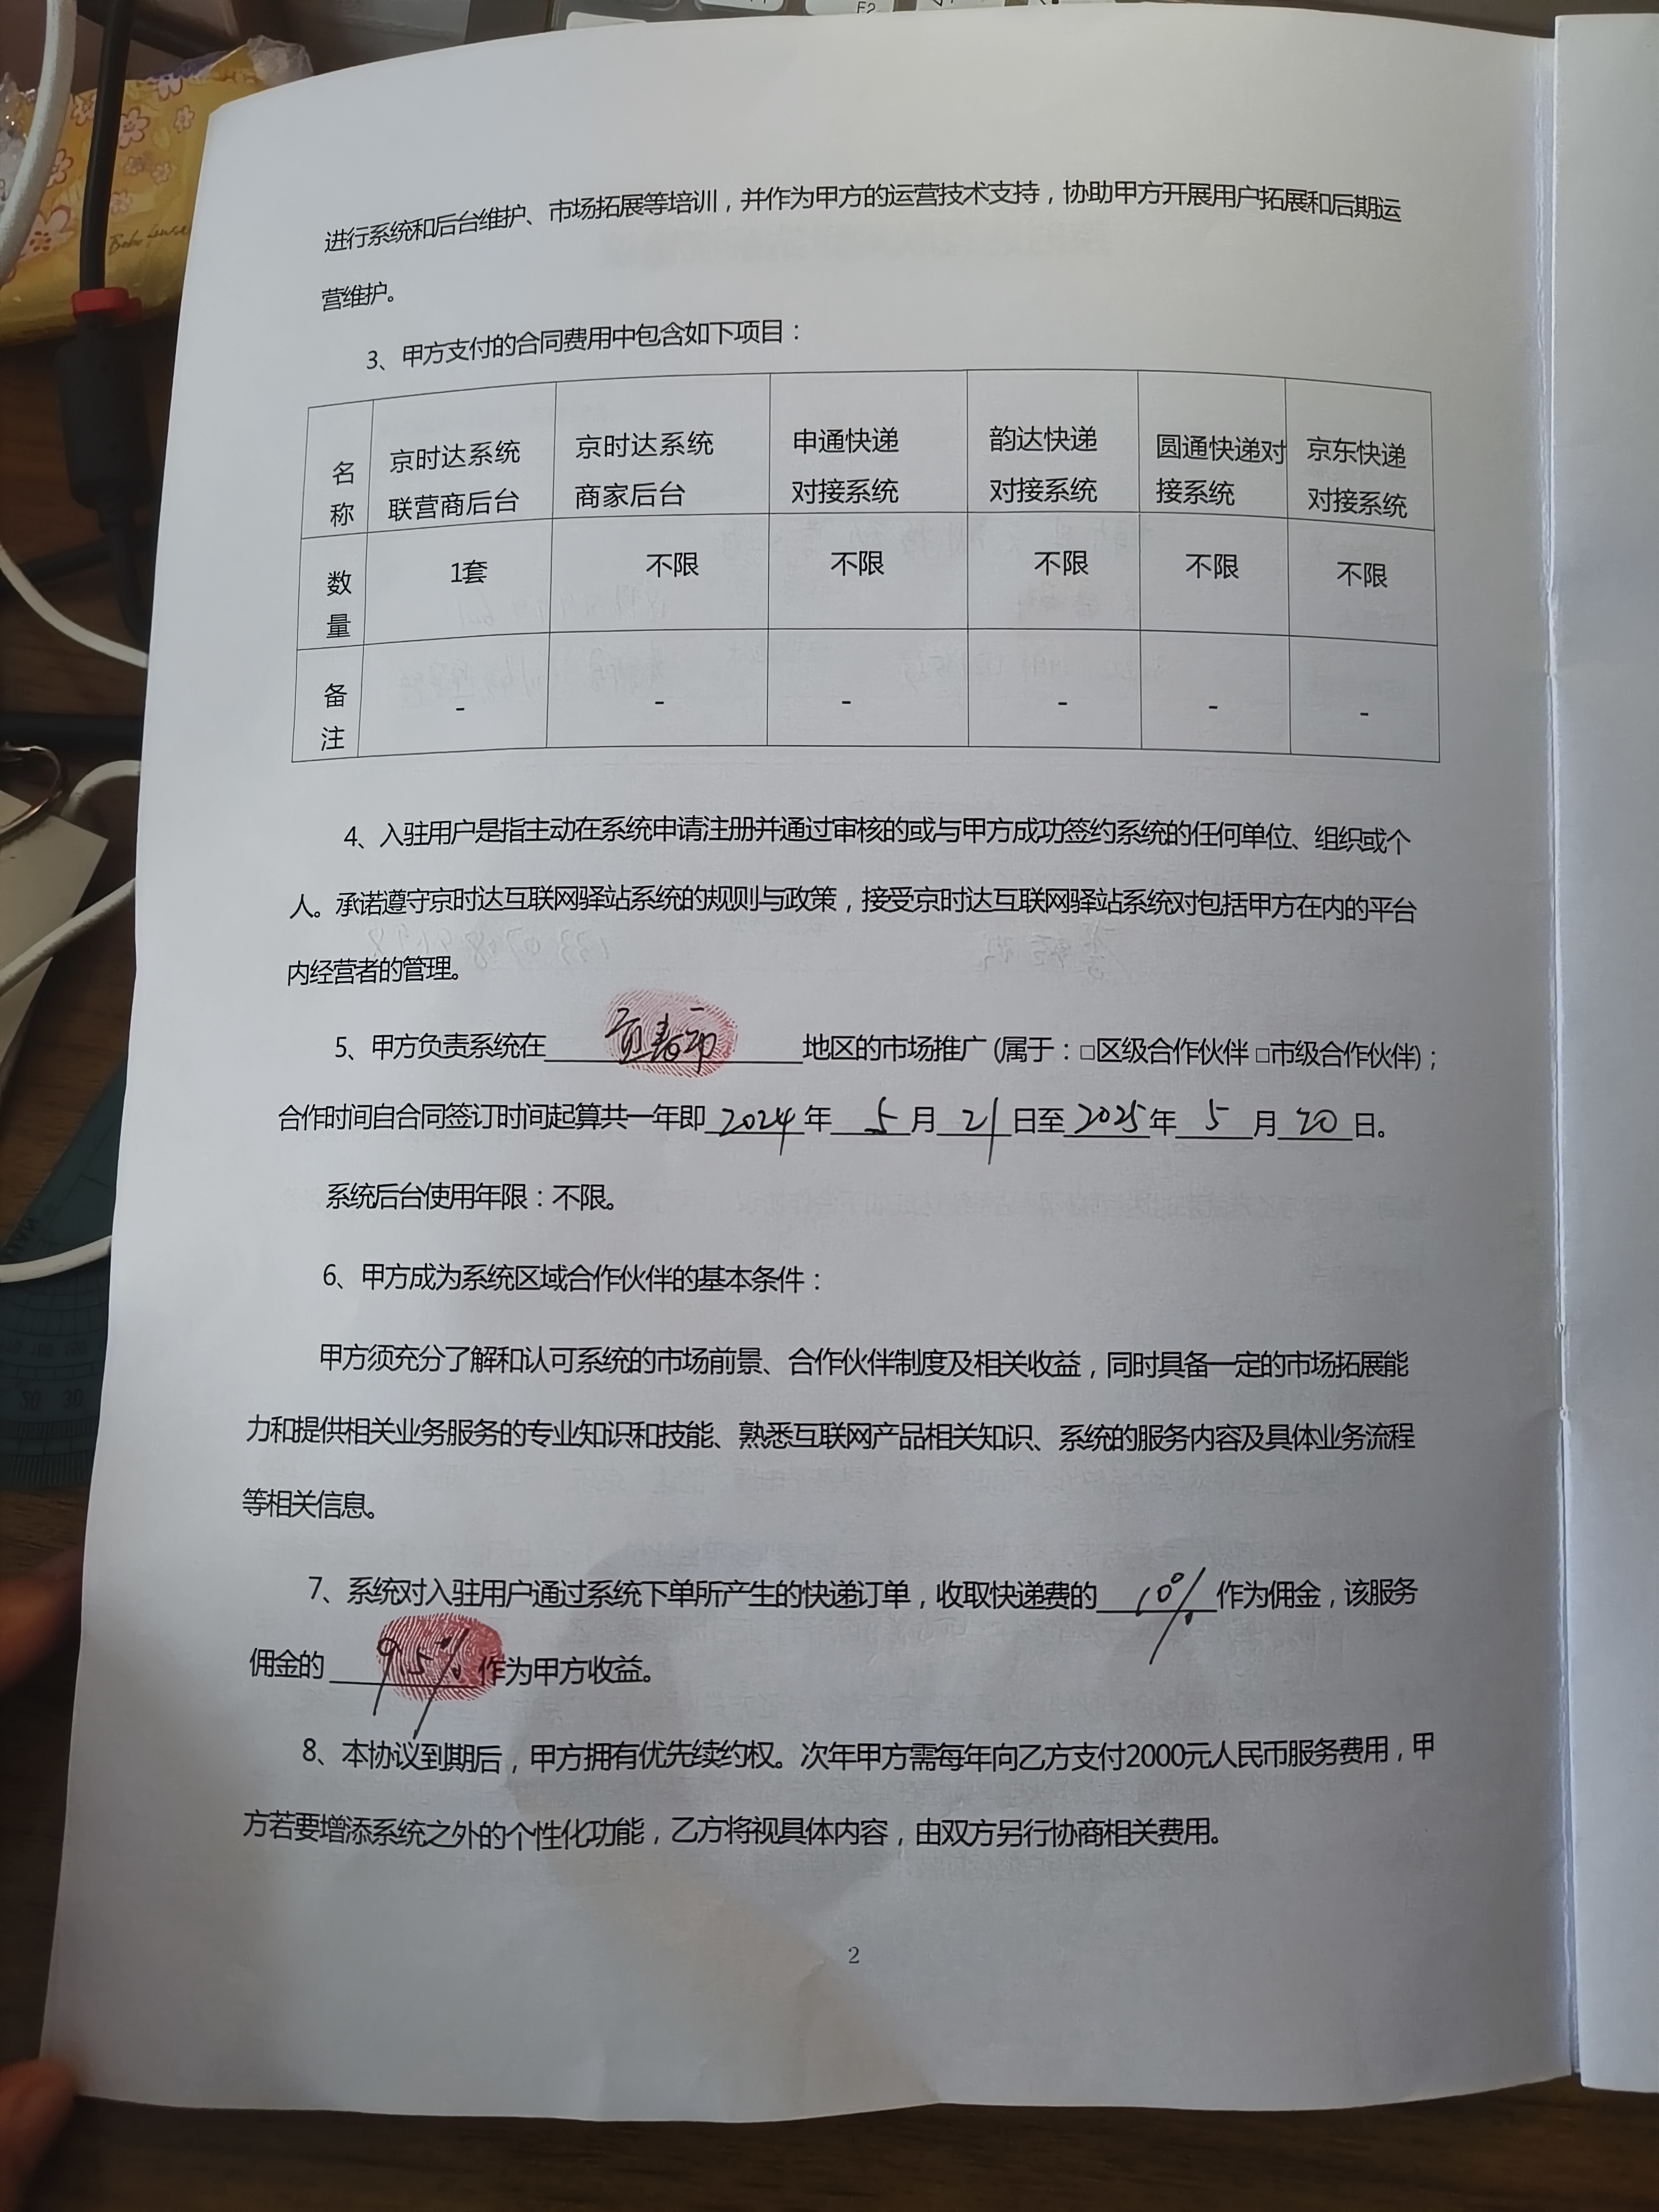 进行系统和后台维护、市场拓展等培训，并作为甲方的运营技术支持，协助甲方开展用户拓展和后期运
营维护。
3、甲方支付的合同费用中包含如下项目：
名称 京时达系统联营商后台 京时达系统商家后台 申通快递对接系统 韵达快递对接系统 圆通快递对接系统 京东快递对接系统
数量 1套 不限 不限 不限 不限 不限
备注 - - - - - -
4、入驻用户是指主动在系统申请注册并通过审核的或与甲方成功签约系统的任何单位、组织或个
人。承诺遵守京时达互联网驿站系统的规则与政策，接受京时达互联网驿站系统对包括甲方在内的平台
内经营者的管理。
5、甲方负责系统在 地区的市场推广 (属于：□区级合作伙伴 □市级合作伙伴)；
合作时间自合同签订时间起算共一年即 2024 年 5 月 21 日至 2025 年 5 月 20 日。
系统后台使用年限：不限。
6、甲方成为系统区域合作伙伴的基本条件：
甲方须充分了解和认可系统的市场前景、合作伙伴制度及相关收益，同时具备一定的市场拓展能
力和提供相关业务服务的专业知识和技能、熟悉互联网产品相关知识、系统的服务内容及具体业务流程
等相关信息。
7、系统对入驻用户通过系统下单所产生的快递订单，收取快递费的 10% 作为佣金，该服务
佣金的 作为甲方收益。
8、本协议到期后，甲方拥有优先续约权。次年甲方需每年向乙方支付2000元人民币服务费用，甲
方若要增添系统之外的个性化功能，乙方将视具体内容，由双方另行协商相关费用。
2